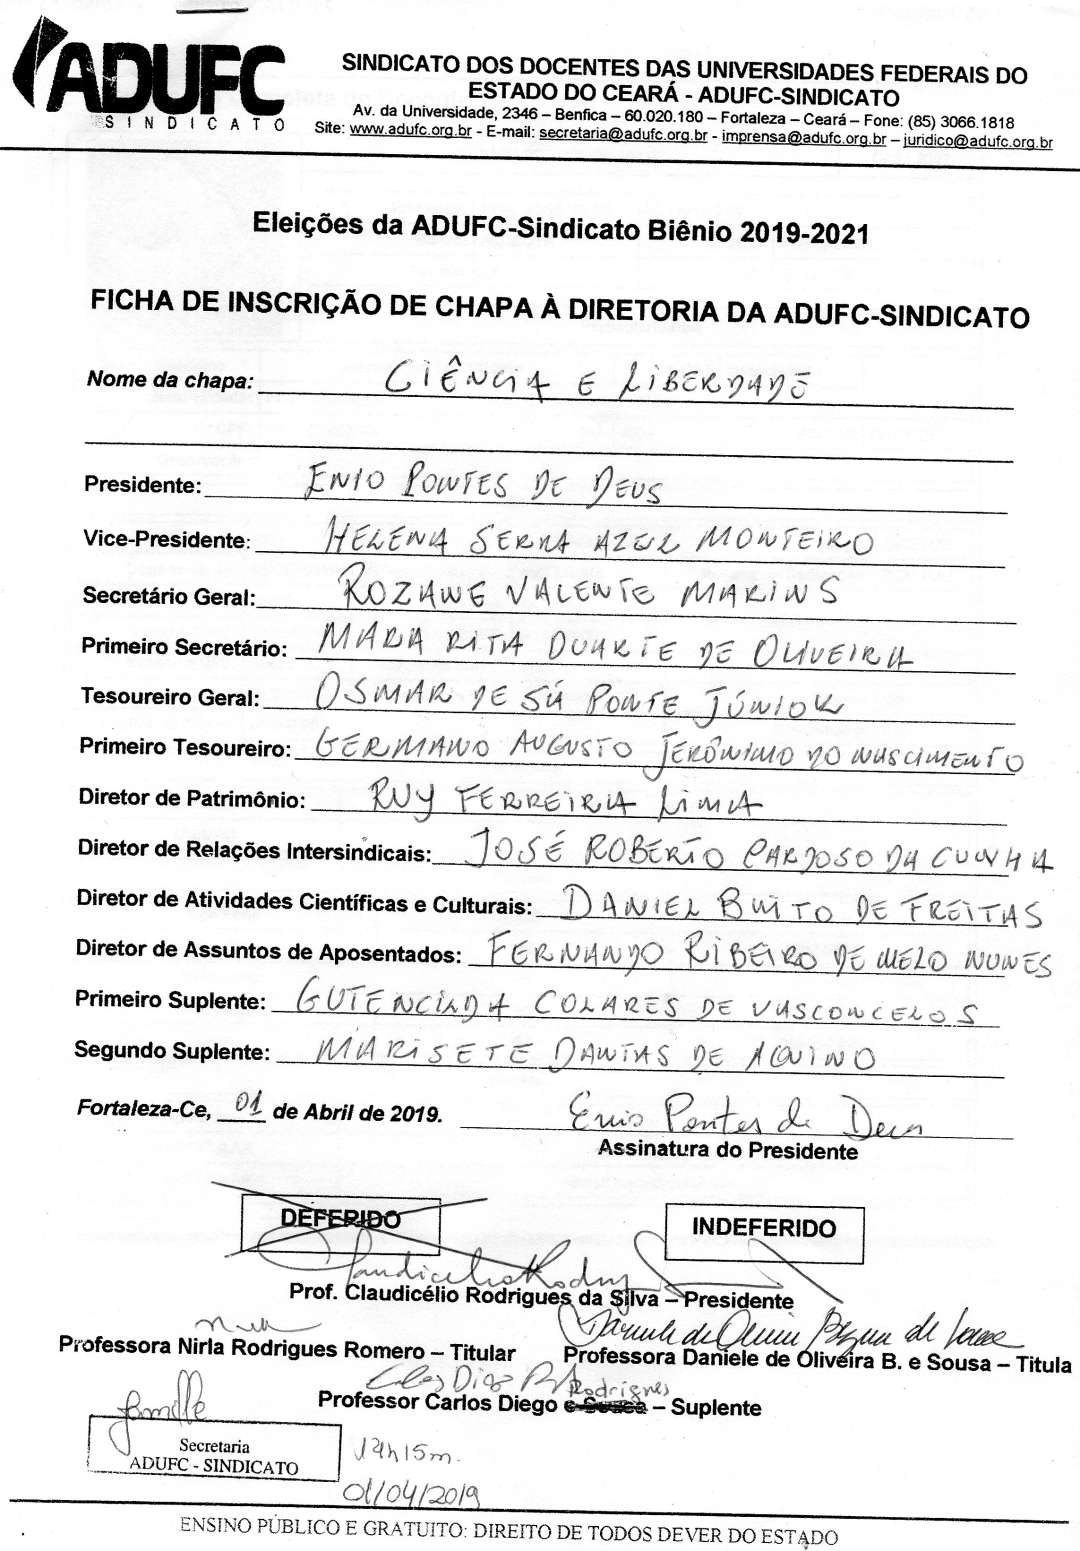 ADUFC
SINDICATO
SINDICATO DOS DOCENTES DAS UNIVERSIDADES FEDERAIS DO
ESTADO DO CEARÁ - ADUFC-SINDICATO
Av. da Universidade, 2346 – Benfica – 60.020.180 – Fortaleza – Ceará – Fone: (85) 3066.1818
Site: www.adufc.org.br - E-mail: secretaria@adufc.org.br - imprensa@adufc.org.br – juridico@adufc.org.br
Eleições da ADUFC-Sindicato Biênio 2019-2021
FICHA DE INSCRIÇÃO DE CHAPA À DIRETORIA DA ADUFC-SINDICATO
Nome da chapa: CIÊNCIA E LIBERDADE
Presidente: ENIO PONTES DE DEUS
Vice-Presidente: HELENA SERRA AZUL MONTEIRO
Secretário Geral: ROZANE VALENTE MARINS
Primeiro Secretário: MARIA RITA DUARTE DE OLIVEIRA
Tesoureiro Geral: OSMAR DE SÁ PONTE JÚNIOR
Primeiro Tesoureiro: GERMANO AUGUSTO JERÔNIMO DO NASCIMENTO
Diretor de Patrimônio: RUY FERREIRA LIMA
Diretor de Relações Intersindicais: JOSÉ ROBERTO CARDOSO DA CUNHA
Diretor de Atividades Científicas e Culturais: DANIEL BRITO DE FREITAS
Diretor de Assuntos de Aposentados: FERNANDO RIBEIRO DE MELO NUNES
Primeiro Suplente: GUTENCILDA COLARES DE VASCONCELOS
Segundo Suplente: MARISETE DANTAS DE AQUINO
Fortaleza-Ce, 01 de Abril de 2019. Enio Pontes de Deus
Assinatura do Presidente
DEFERIDO INDEFERIDO
Claudicélio Rodrigues
Prof. Claudicélio Rodrigues da Silva – Presidente
Daniele de Oliveira Bezerra de Sousa
Professora Nirla Rodrigues Romero – Titular Professora Daniele de Oliveira B. e Sousa – Titula
Carlos Diego Rodrigues
Professor Carlos Diego e Sousa – Suplente
Secretaria
ADUFC - SINDICATO
01/04/2019
ENSINO PÚBLICO E GRATUITO: DIREITO DE TODOS DEVER DO ESTADO